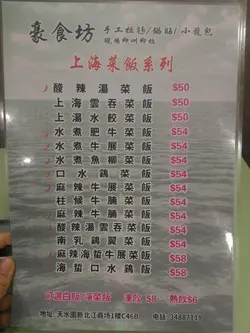 豪食坊
手工拉麵/鍋貼/小籠包
上海菜飯系列
酸辣湯菜飯 $50
上海雲吞菜飯 $50
上湯水餃菜飯 $50
水煮肥牛菜飯 $54
水煮牛展菜飯 $54
水煮魚柳菜飯 $54
口水鷄菜飯 $54
麻辣牛展菜飯 $54
柱候牛腩菜飯 $54
麻辣牛腩菜飯 $54
酸辣湯雲吞菜飯 $54
南乳鷄翼菜飯 $54
麻辣海蜇牛展菜飯 $58
海蜇口水鷄飯 $58
可選白飯/菜飯 凍飲 $8 熱飲$6
地址:天水圍新北江商場1樓C46B 電話: